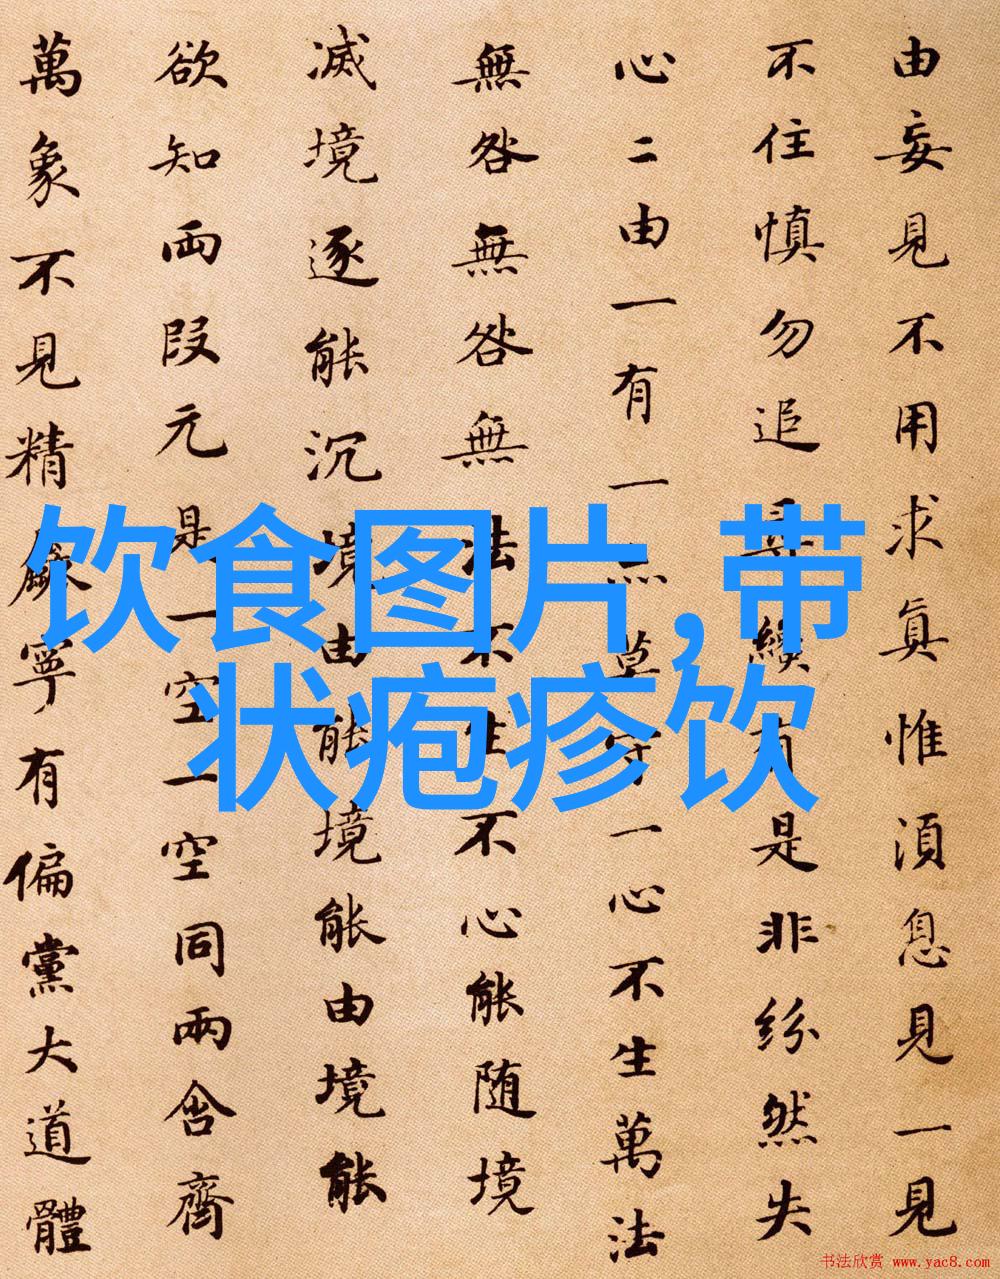 由妄見不用求真惟湏息見一見
不住慎勿追尋纔有是非紛然失
心二由一有一亦莫守一心不生萬法
無咎無咎無法不生不心能随境
滅境逐能沉境由能境能由境能
欲知兩段元是一空一空同兩含齊
萬象不見精麤寧有偏黨大道體
饮食图片,带
状疱疹饮
书法欣赏 www.yac8.com